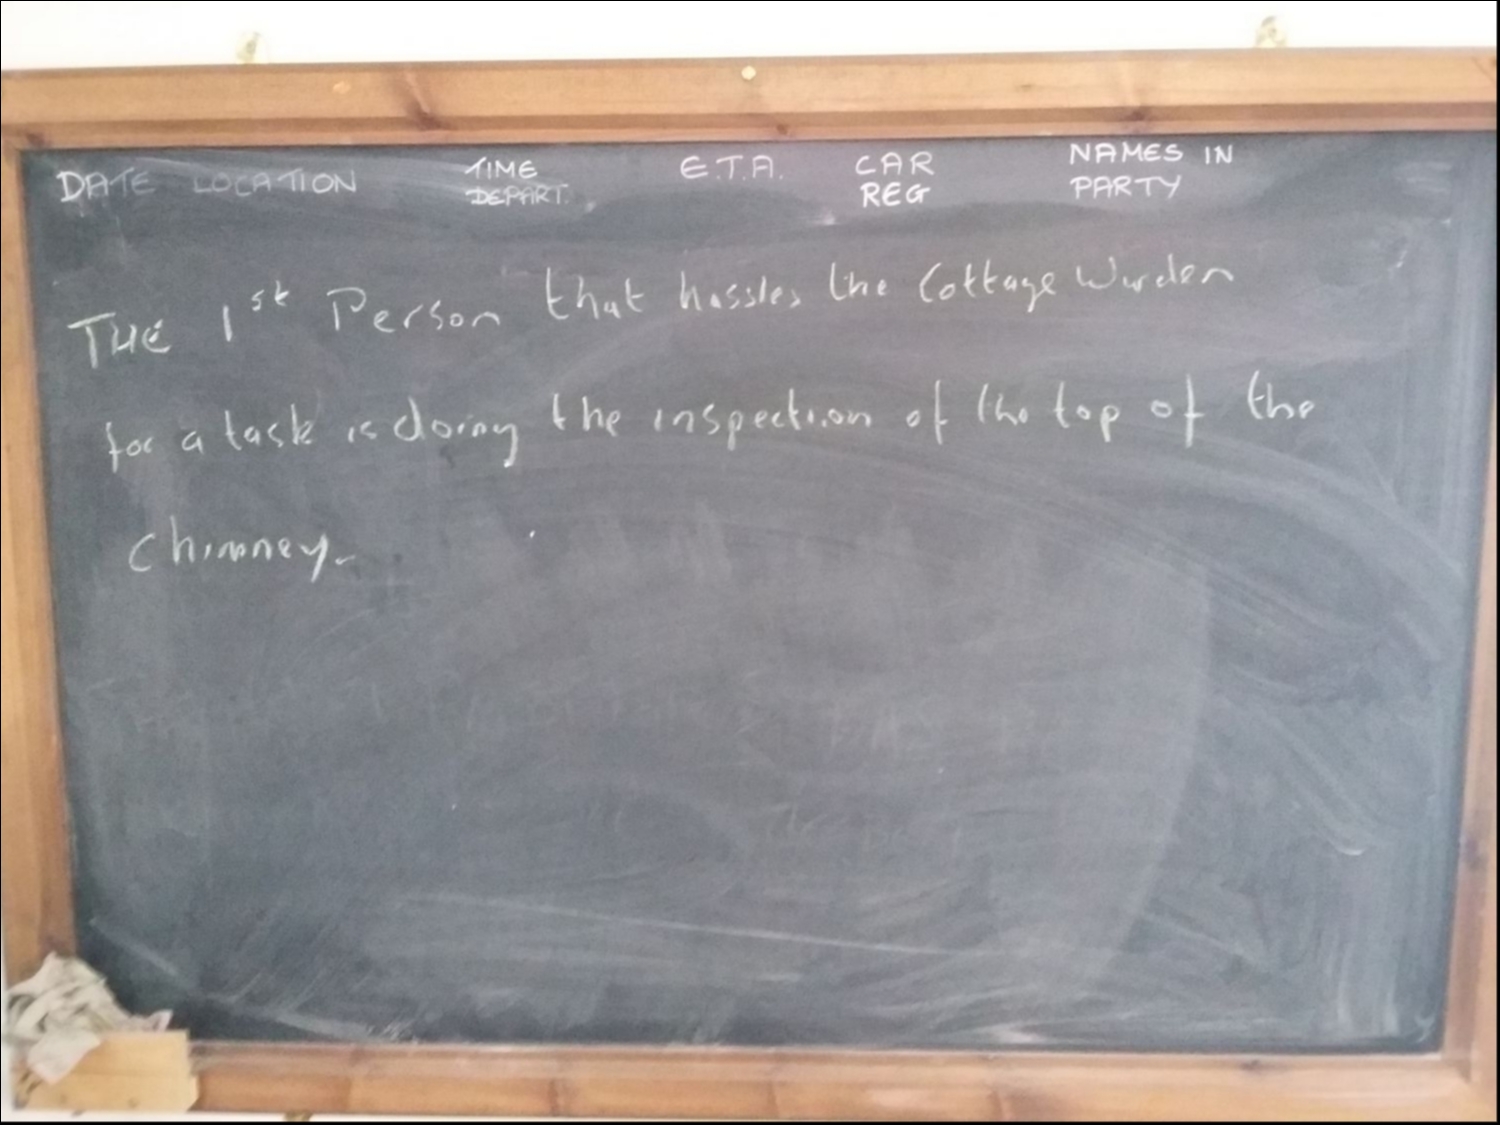 DATE LOCATION TIME DEPART. E.T.A. CAR REG NAMES IN PARTY
THE 1st Person that hassles the Cottage Warden
for a task is doing the inspection of the top of the
chimney.